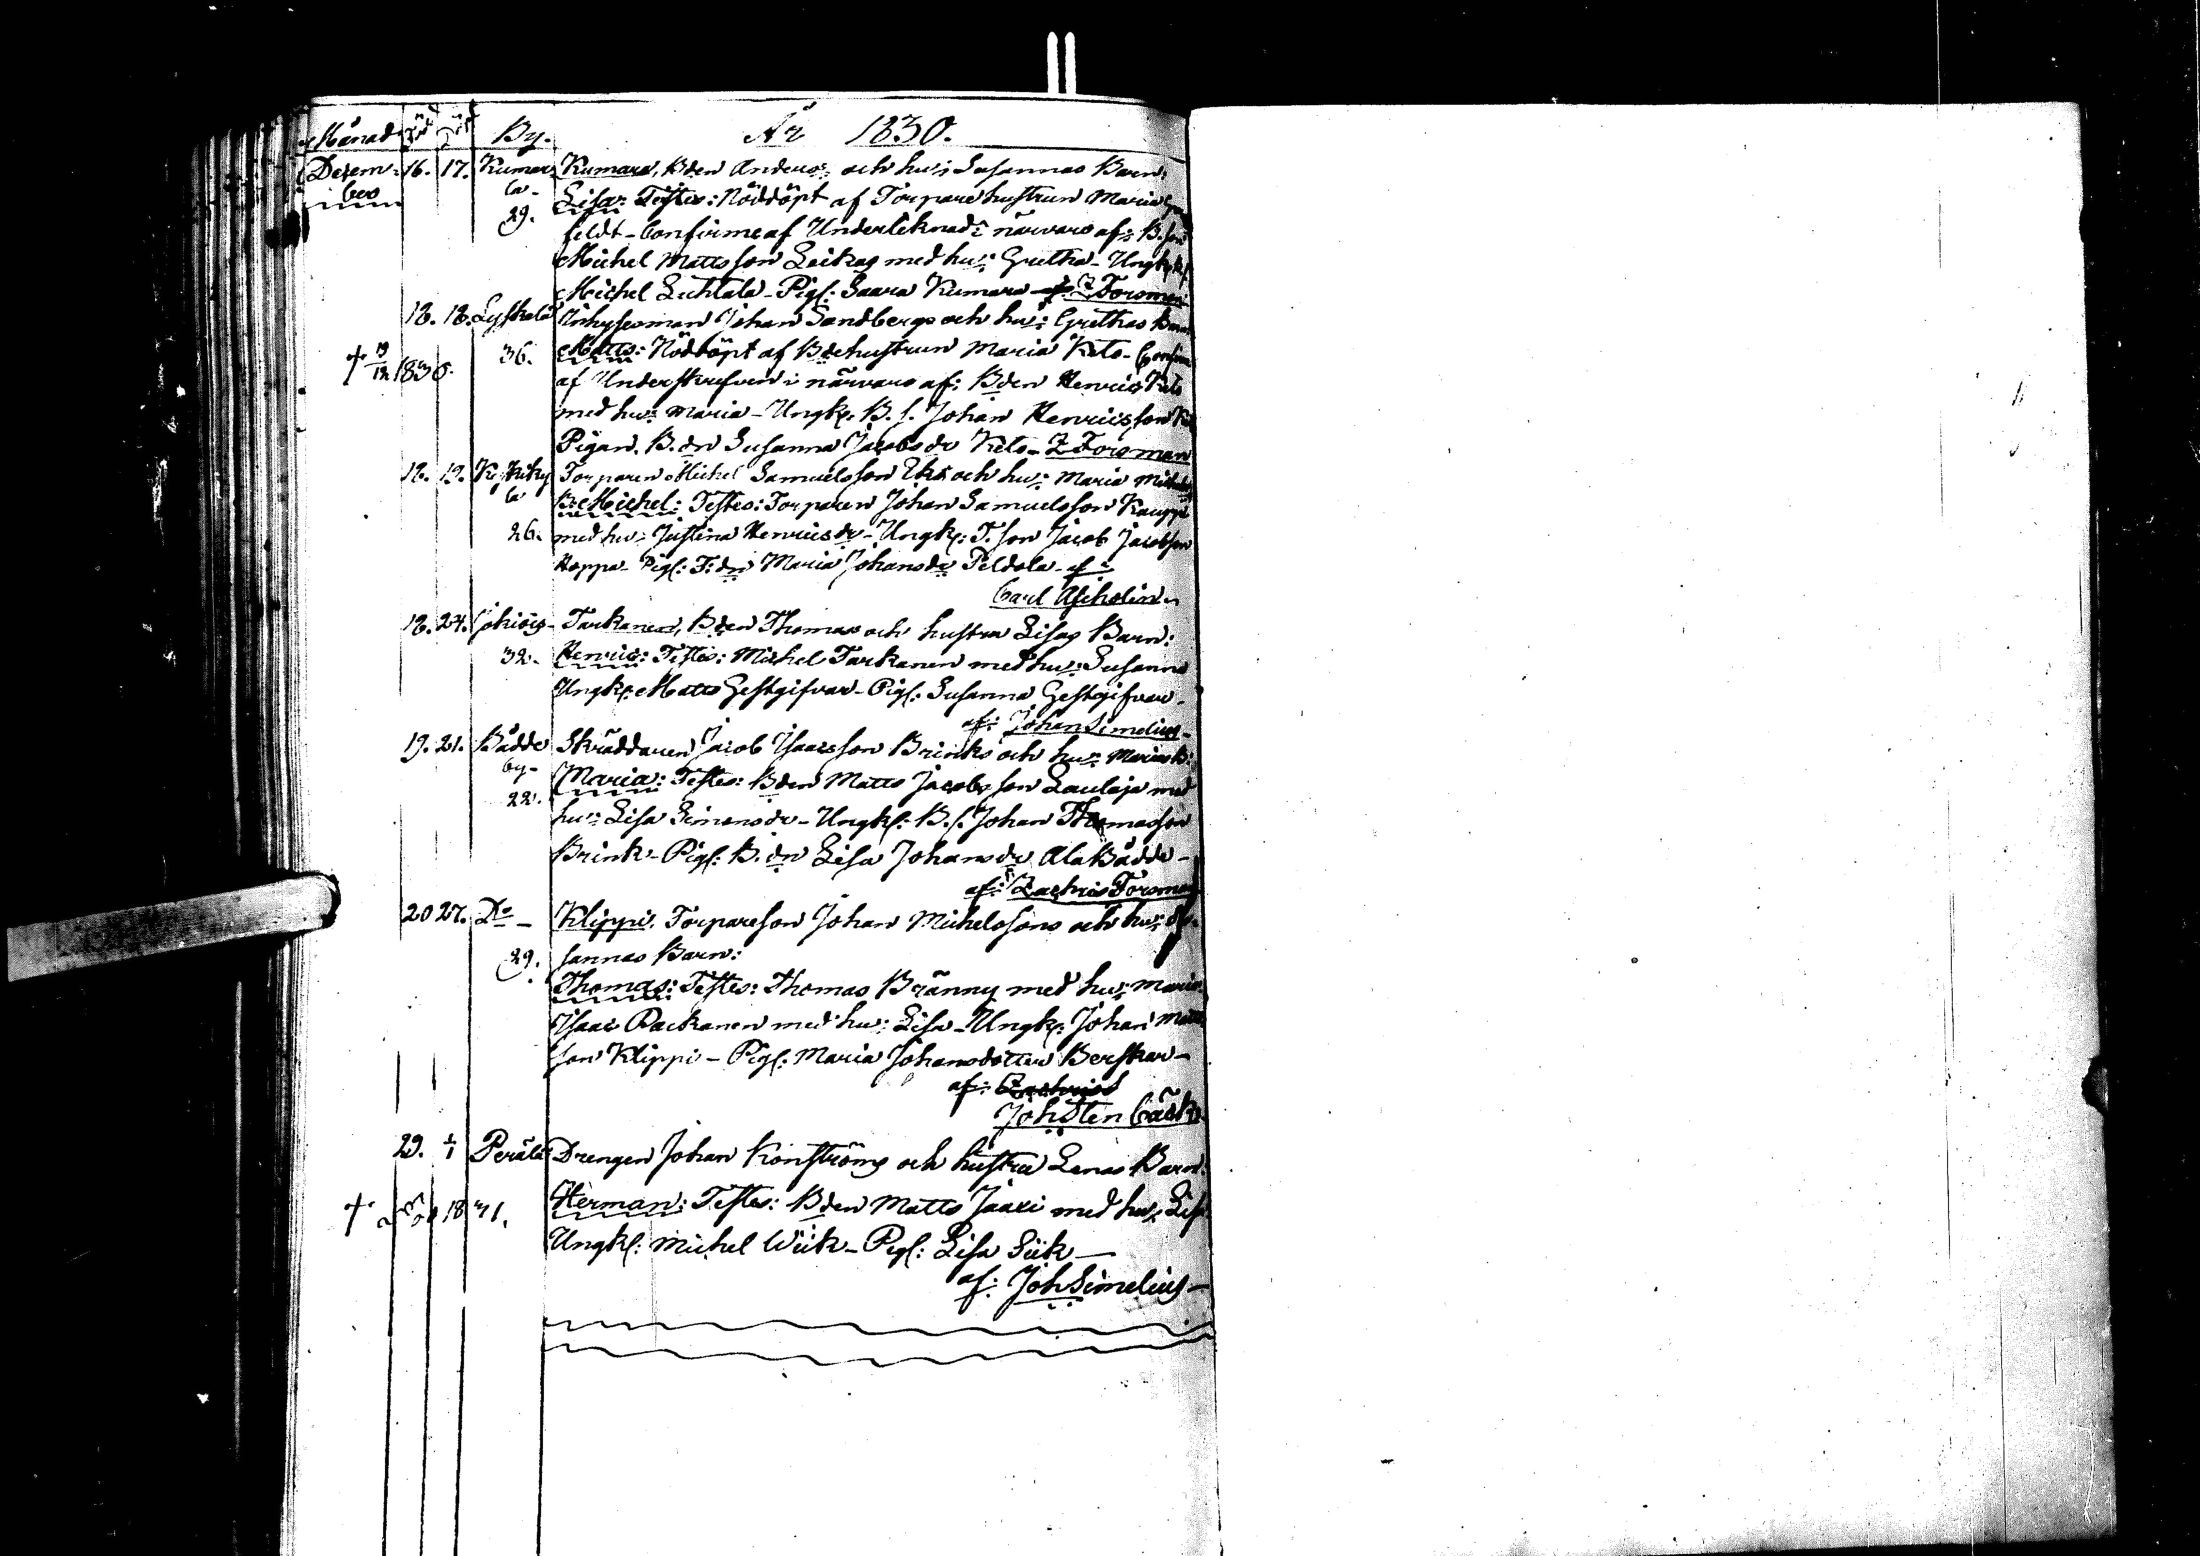 Månad By. År 1830.
Decem- 16. 17. Kumar Kumara, Bden Anders och hu: Susannas Barn:
ber la- Lisa: Testes: Nöddöpt af Torpare hustrun Maria
29. feldt - Confirme af Underteknad i närvaro af: B. son
Michel Matts son Leikas med hu: Gretha - Ungk:
Michel Luhtala - Pig: Saara Kumara af Z Forsman
18. 18. Lyskälä Inhysesman Johan Sandbergs och hu: Grethas Barn
† 19/12 1830. 36. Matts: Nöddöpt af Bdehustrun Maria Keto - Confirm
af Underskrefven i närvaro af: Bden Henric Keto
med hu: Maria - Ungk. B. s. Johan Henricsson
Pigan. B. dr Susanna Jacobs dr Keto - Z Forsman
18. 19. Torparen Michel Samuelsson och hu: Maria
la B: Michel: Testes: Torparen Johan Samuelsson Kauppi
26. med hu: Justina Henrics dr - Ungk: T. son Jacob Jacobsson
Hoppa - Pig: T: dr Maria Johans dr Peldola - af
Carl Ascholin
18. 24. Tarkanen, Bden Thomas och hustru Lisas Barn:
32. Henric: Testes: Michel Tarkanen med hu: Susanna
Ungk: Matts Gestgifvar - Pig: Susanna Gestgifvar -
af: Johan Simelius
19. 21. Bådde Skräddaren Jacob Isacsson Brinks och hu: Marias B:
by- Maria: Testes: Bden Matts Jacobs son Laulaja med
22. hu: Lisa Simons dr - Ungk: B. s. Johan Thomasson
Brink - Pig: B. dr Lisa Johans dr AlaBådde -
af: Zachris Forsman
20 27. Do - Klippi. Torpareson Johan Michelssons och hu: Su-
29. sannas Barn:
Thomas: Testes: Thomas Bränny med hu: Maria
Isaac Packanen med hu: Lisa - Ungk: Johan Matts
son Klippi - Pig: Maria Johansdotter Berskar -
af: Zachris
Joh Sten Bäck
29. 1/1 Perälä Drengen Johan Konströms och hustru Lenas Barn:
† 1831. Herman: Testes: Bden Matts Jaari med hu: Lisa
Ungk: Michel Wiik - Pig: Lisa Siik -
af: Joh Simelius -